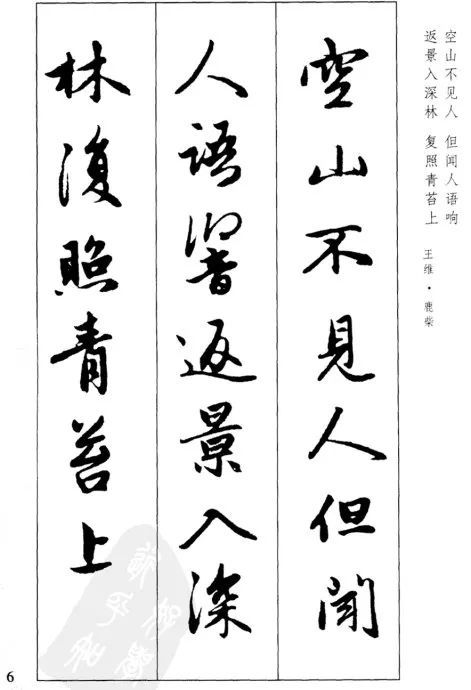 空山不见人 但闻人语响
返景入深林 复照青苔上
王维·鹿柴
空山不見人但聞
人語響返景入深
林復照青苔上
6